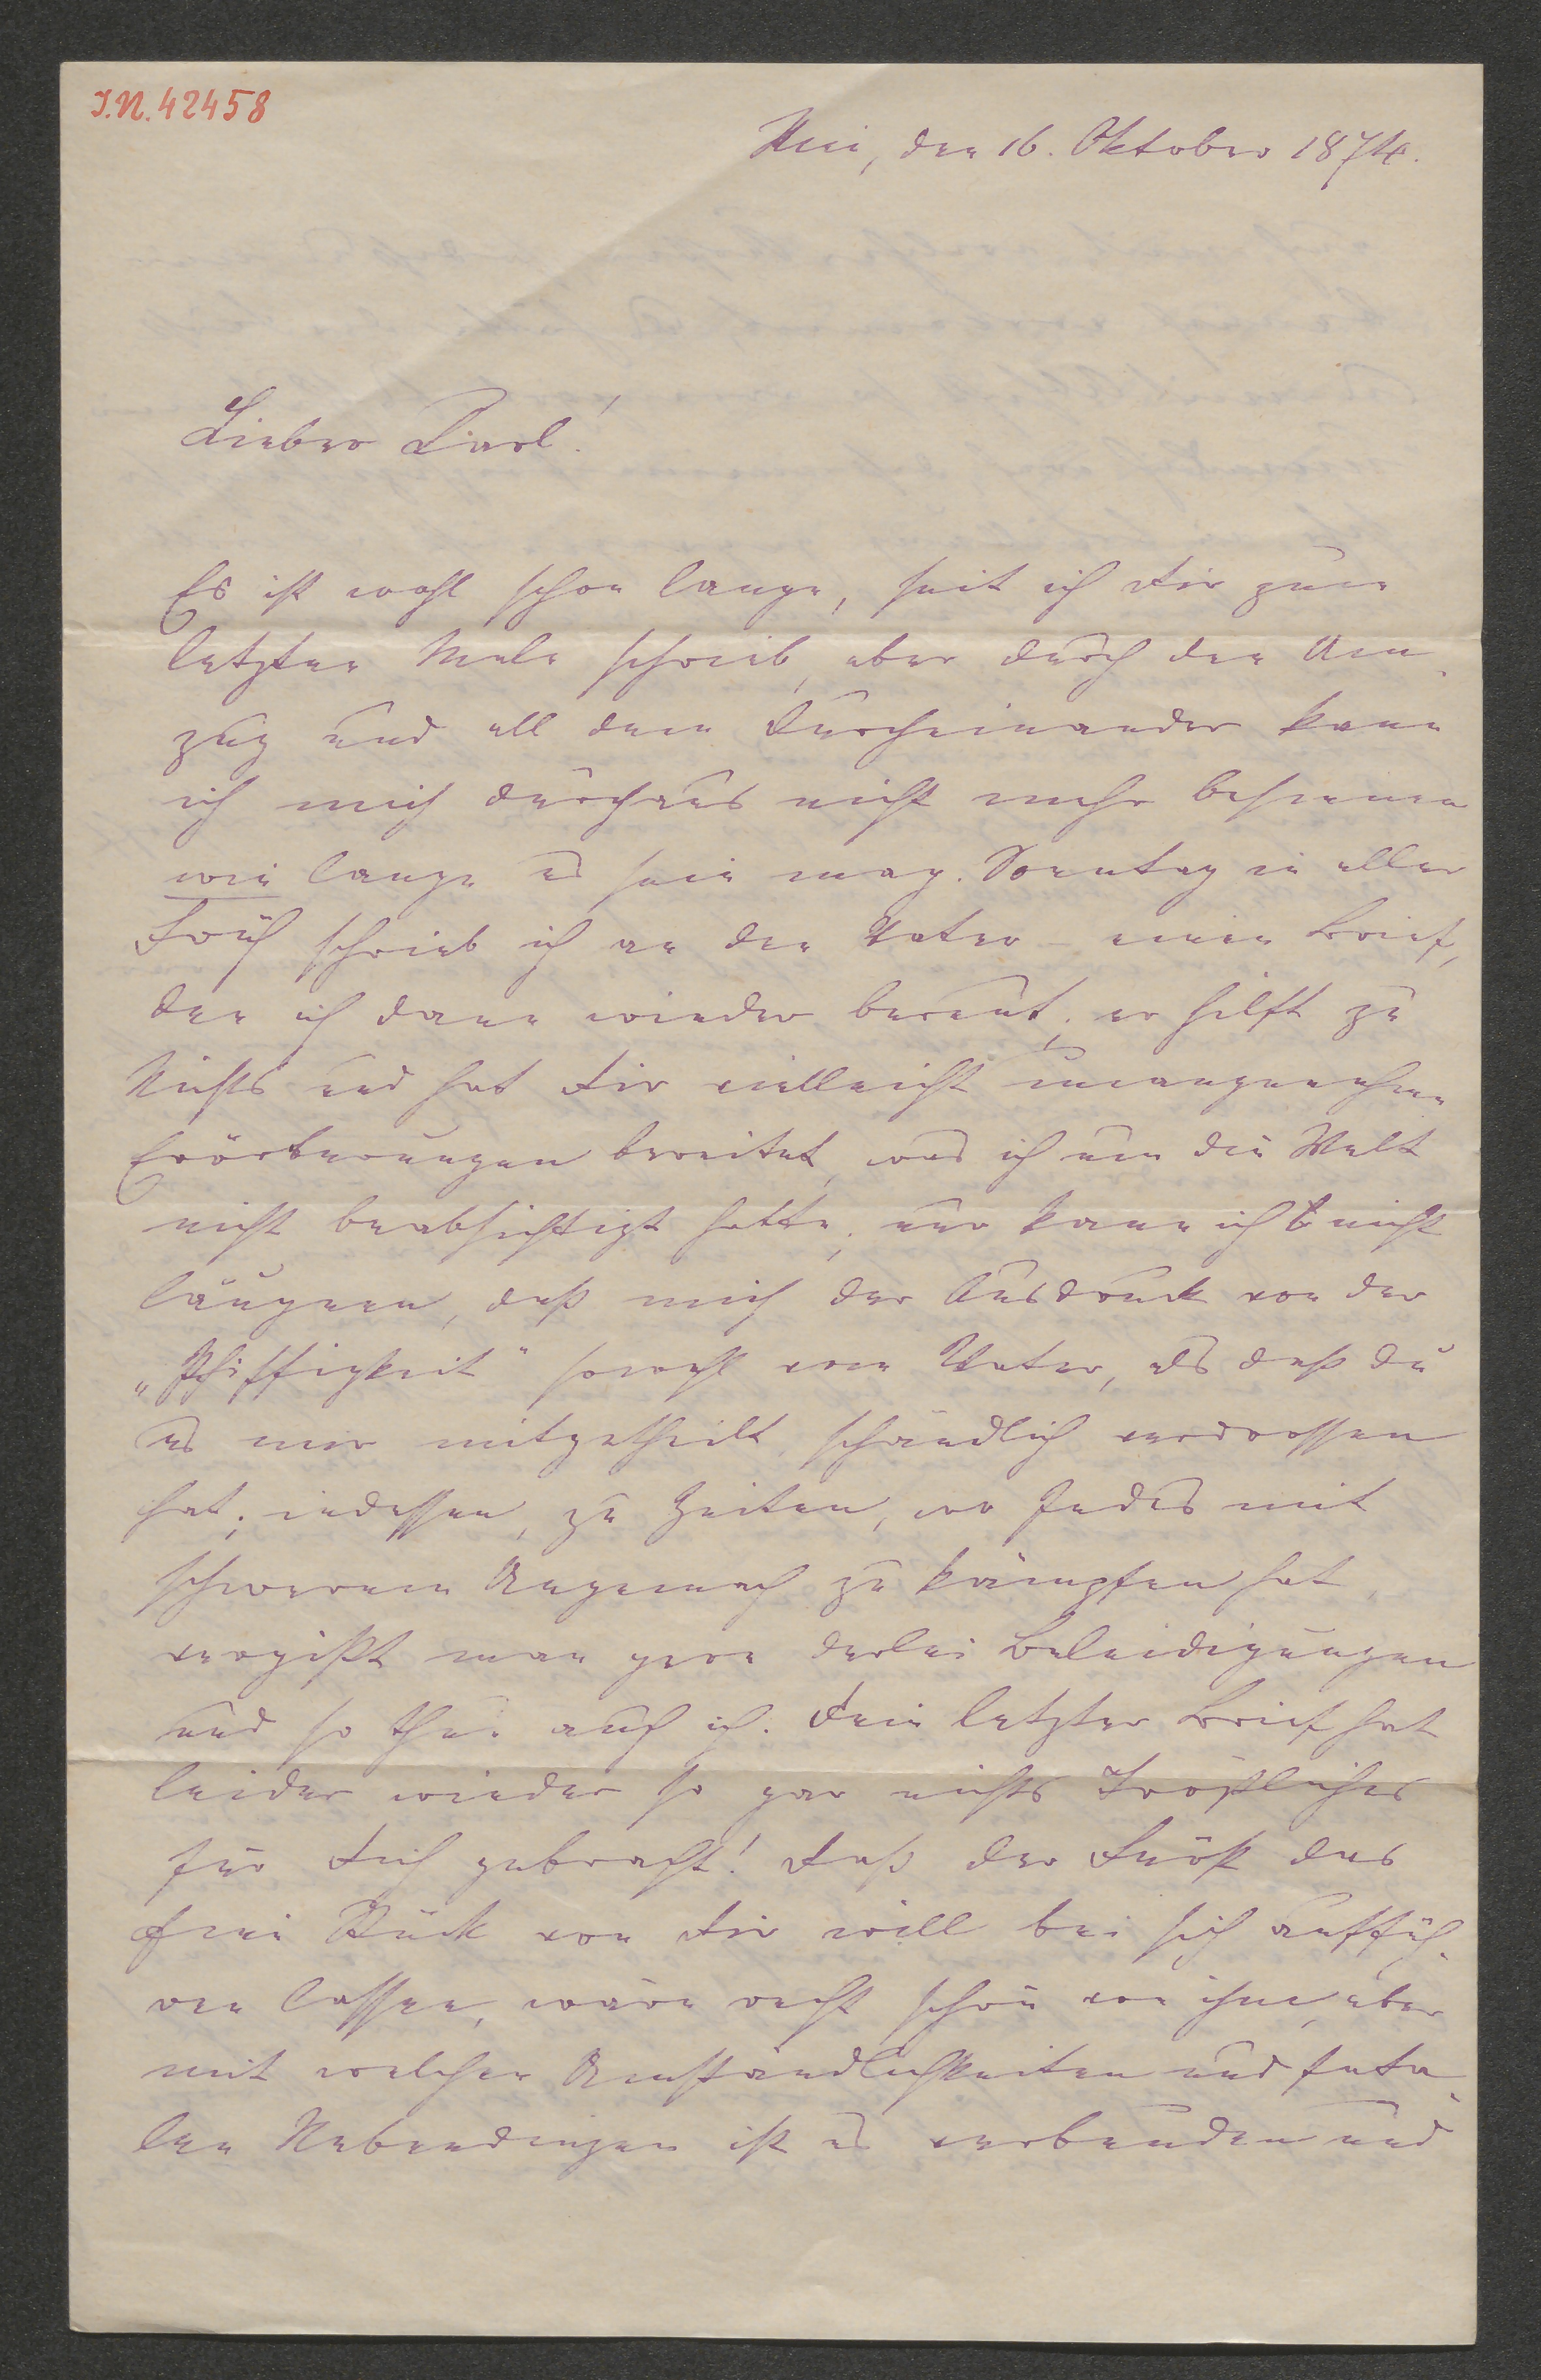 I.N. 42458
den 16. Oktober 1874.
Lieber Carl!
Es ist wohl schon lange, seit ich Dir zum
letzten Male schrieb, aber durch den Um¬
zug und all dem Durcheinander kann
ich mich durchaus nicht mehr besinnen
wie lange es sein mag. Sonntag in aller
Früh schrieb ich an den Vater – einen Brief,
den ich dann wieder bereut; er hilft zu
Nichts und hat Dir vielleicht unangenehme
Erörterungen bereitet, was ich um die Welt
nicht beabsichtigt hätte; nur kann ich nicht
läugnen, daß mich der Ausdruck von der
„Pfiffigkeit" sowohl vom Vater, als daß du
es mir mitgetheilt, schändlich verdrossen
hat; indessen, zu Zeiten, wo Jedes mit
schwerem Ungemach zu kämpfen hat,
vergißt man gern derlei Beleidigungen
und so thue auch ich. Dein letzter Brief hat
leider wieder so gar nichts Tröstliches
für Dich gebracht! Daß der Fürst das
ein Stück von Dir will bei sich auffüh¬
ren lassen, wäre recht schön von ihm, aber
mit welchen Umständlichkeiten und fata¬
len Nebendingen ist es verbunden und